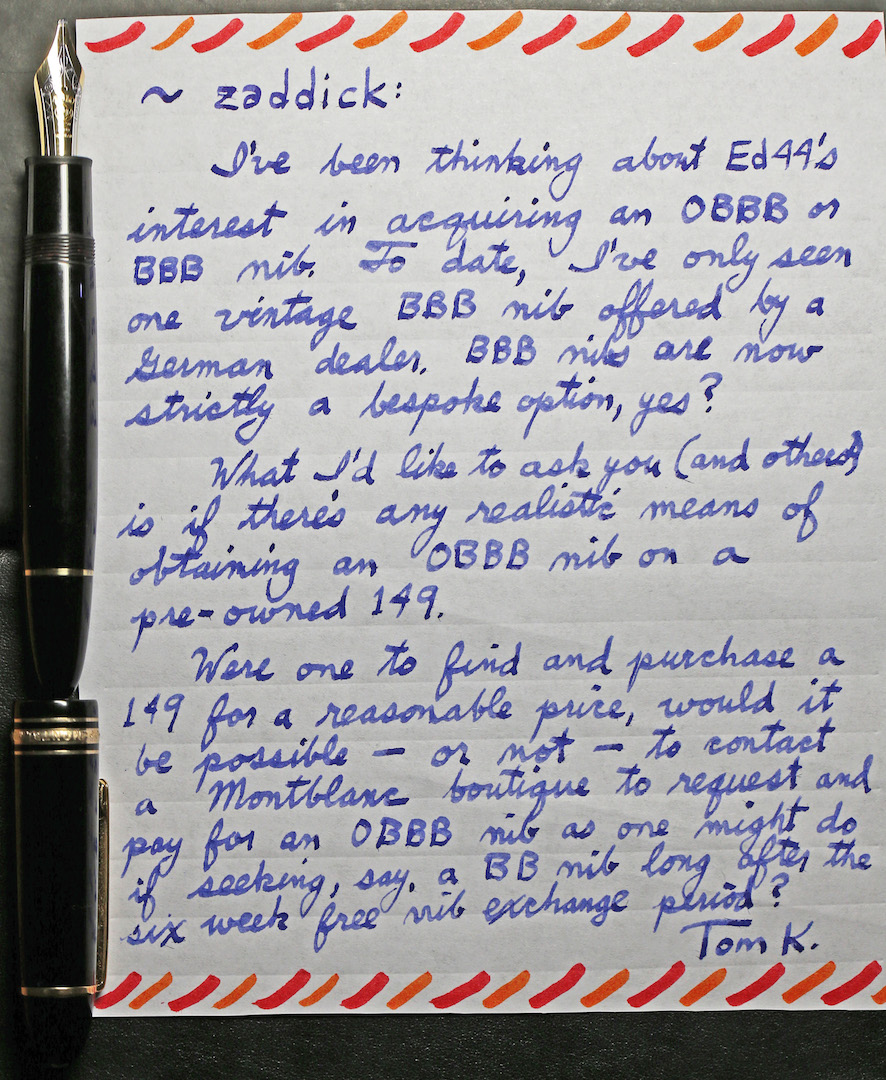 ~ zaddick:
I've been thinking about Ed44's
interest in acquiring an OBBB or
BBB nib. To date, I've only seen
one vintage BBB nib offered by a
German dealer. BBB nibs are now
strictly a bespoke option, yes?
What I'd like to ask you (and others)
is if there's any realistic means of
obtaining an OBBB nib on a
pre-owned 149.
Were one to find and purchase a
149 for a reasonable price, would it
be possible – or not – to contact
a Montblanc boutique to request and
pay for an OBBB nib as one might do
if seeking, say, a BB nib long after the
six week free nib exchange period?
Tom K.